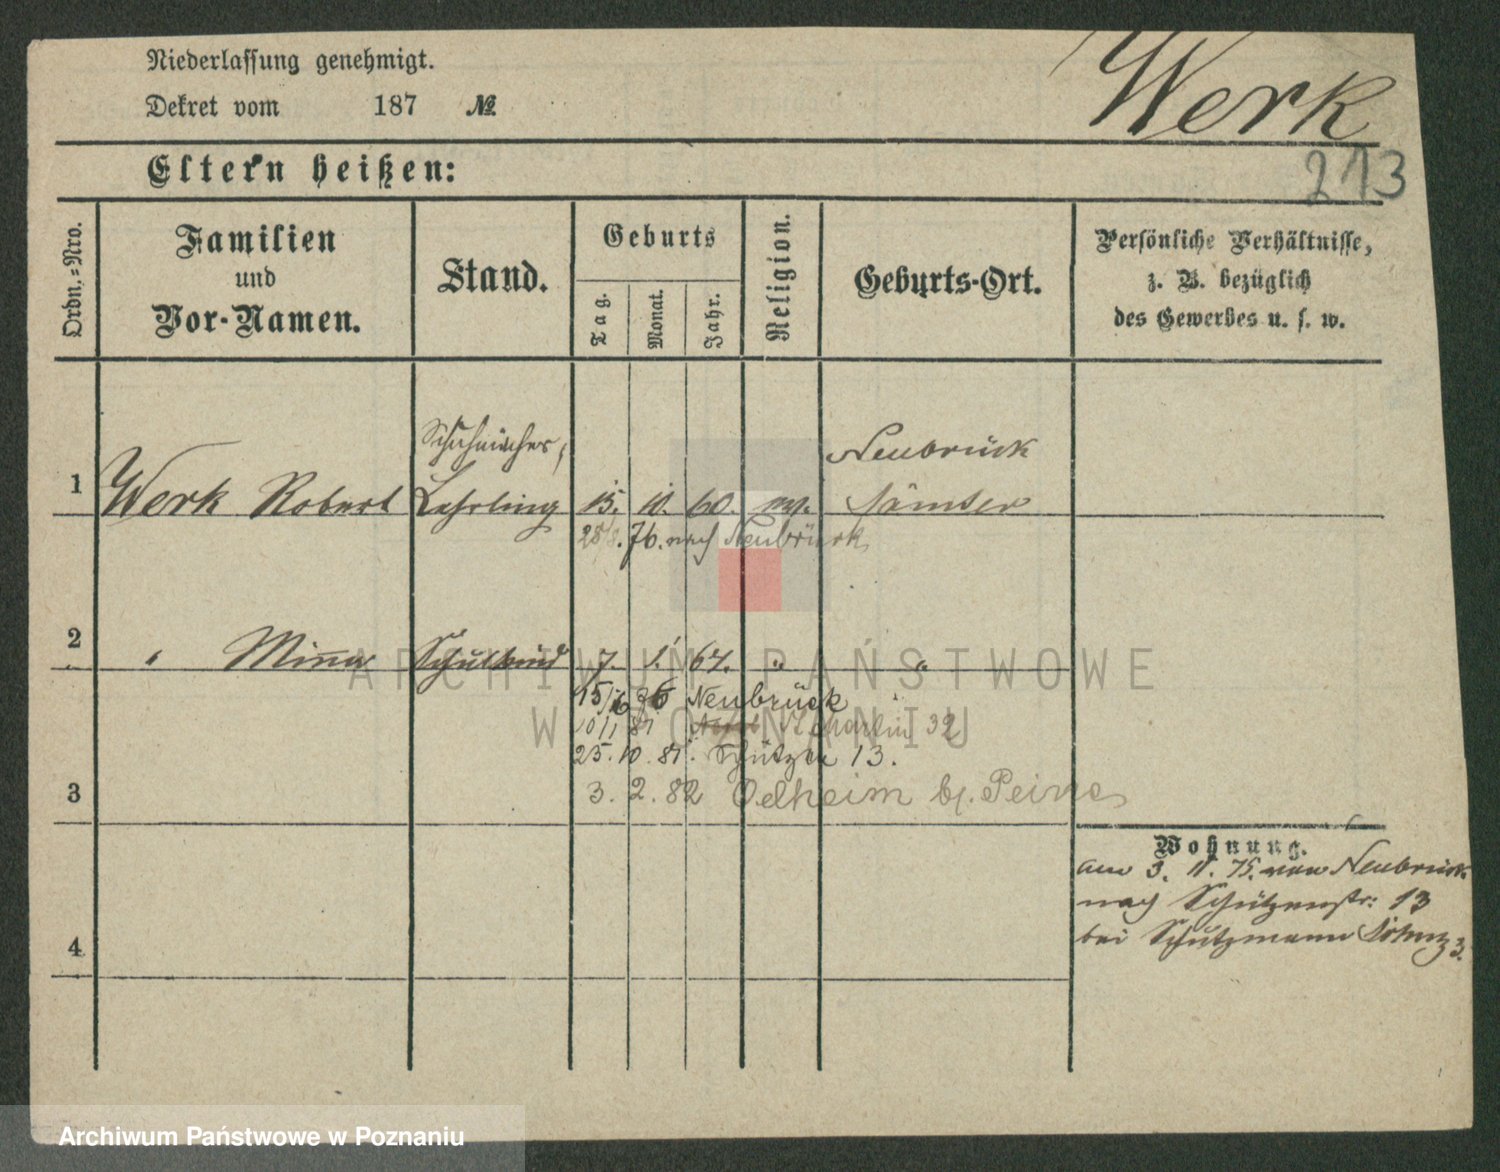 Niederlassung genehmigt.
Dekret vom 187 №
Werk
213
Eltern heißen:
Ordn.-Nro.
Familien
und
Vor-Namen.
Stand.
Geburts
Tag.
Monat.
Jahr.
Religion.
Geburts-Ort.
Persönliche Verhältnisse,
z. B. bezüglich
des Gewerbes u. s. w.
Schuhmacher,
Neubrück
1 Werk Robert Lehrling 15. 11. 60. ev. Samter
28/8. 76. nach Neubrück
2 " Mina Schulkind 7. 1. 67. " "
ARCHIWUM PAŃSTWOWE
W POZNANIU
15/6 76 Neubrück
10/1 81 St Martin 32
25. 10. 81. Schützen 13.
3 3. 2. 82 Oelheim b. Peine
Wohnung.
am 3. 11. 75. von Neubrück
nach Schützenstr: 13
bei Schutzmann
4
Archiwum Państwowe w Poznaniu